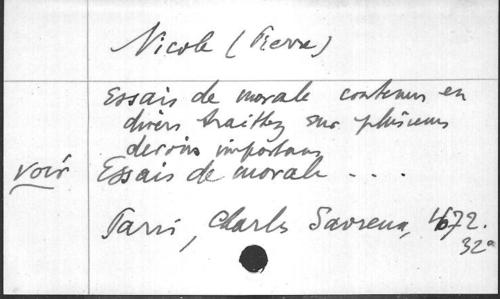 Nicole (Pierre)
Essais de morale contenus en
divers traittez sur plusieurs
devoirs importans
voir Essais de morale ....
Paris, Charles Savreux, 1672.
32°